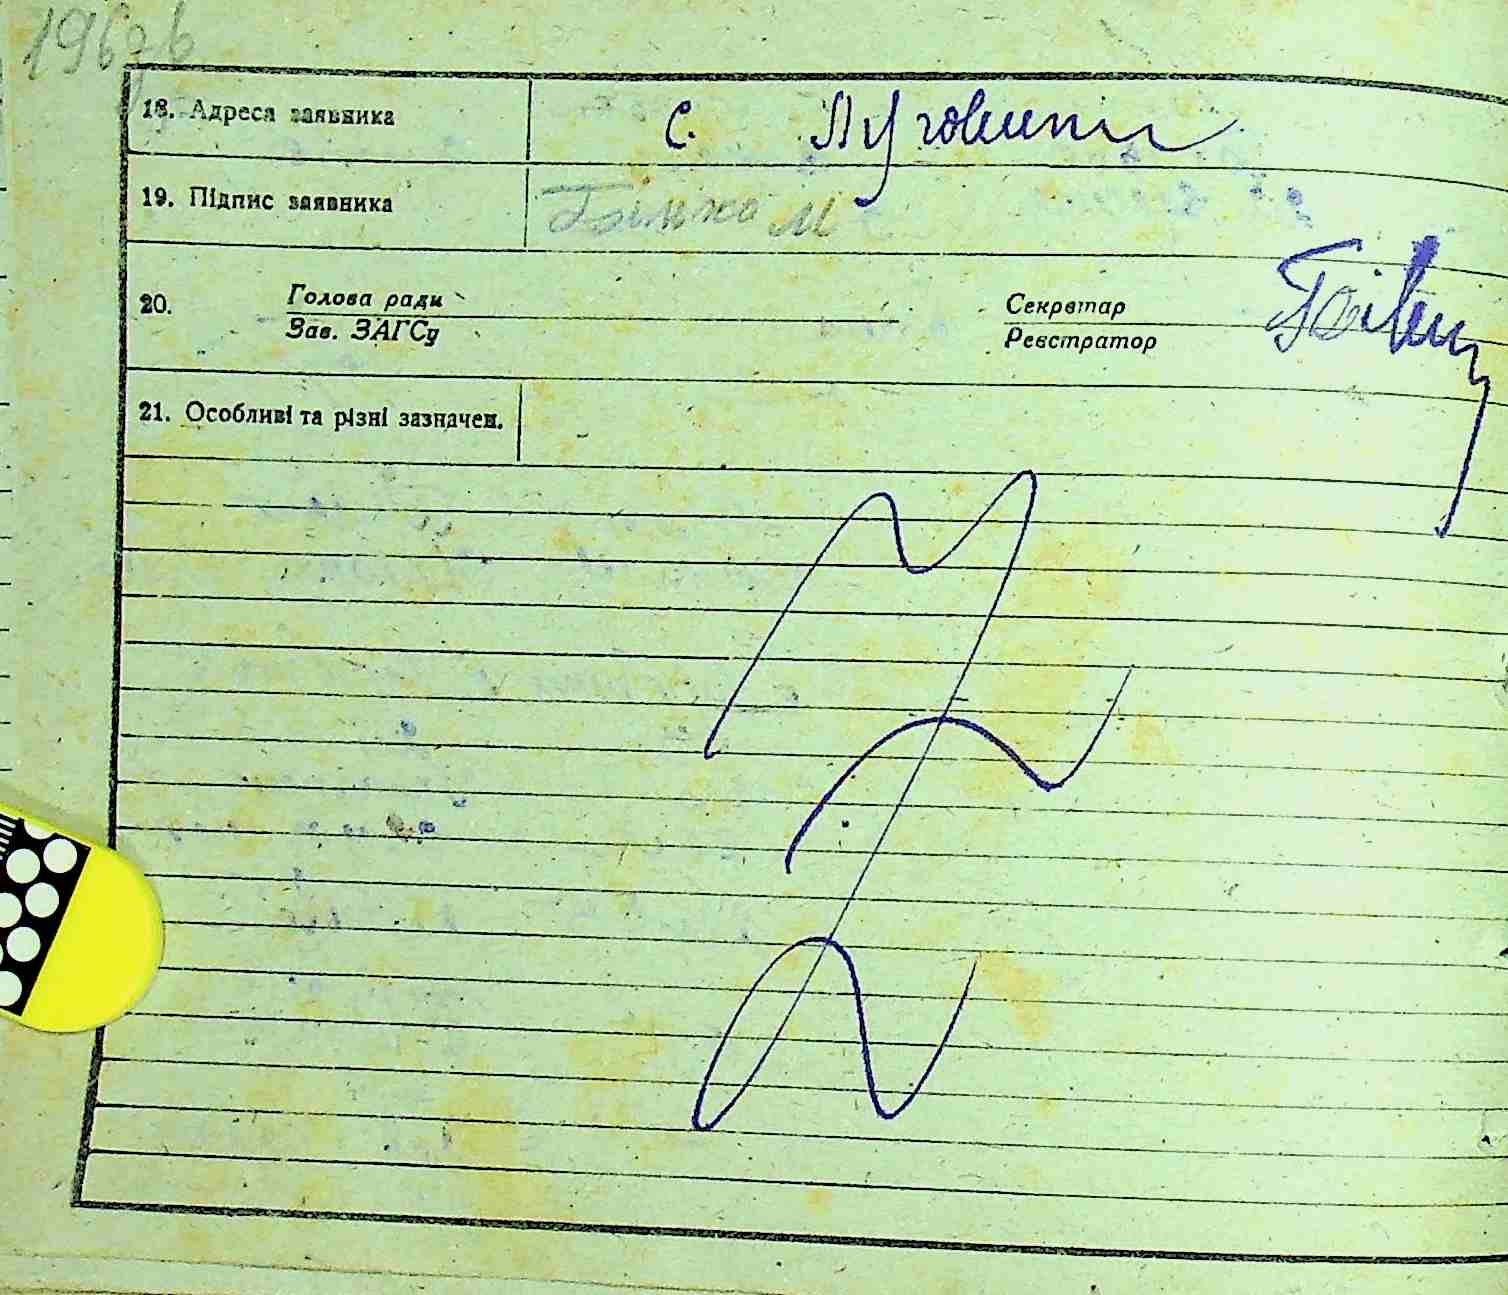 18. Адреса заявника с.
19. Підпис заявника М
20. Голова ради Секретар
Зав. ЗАГСу Реєстратор
21. Особливі та різні зазначен.